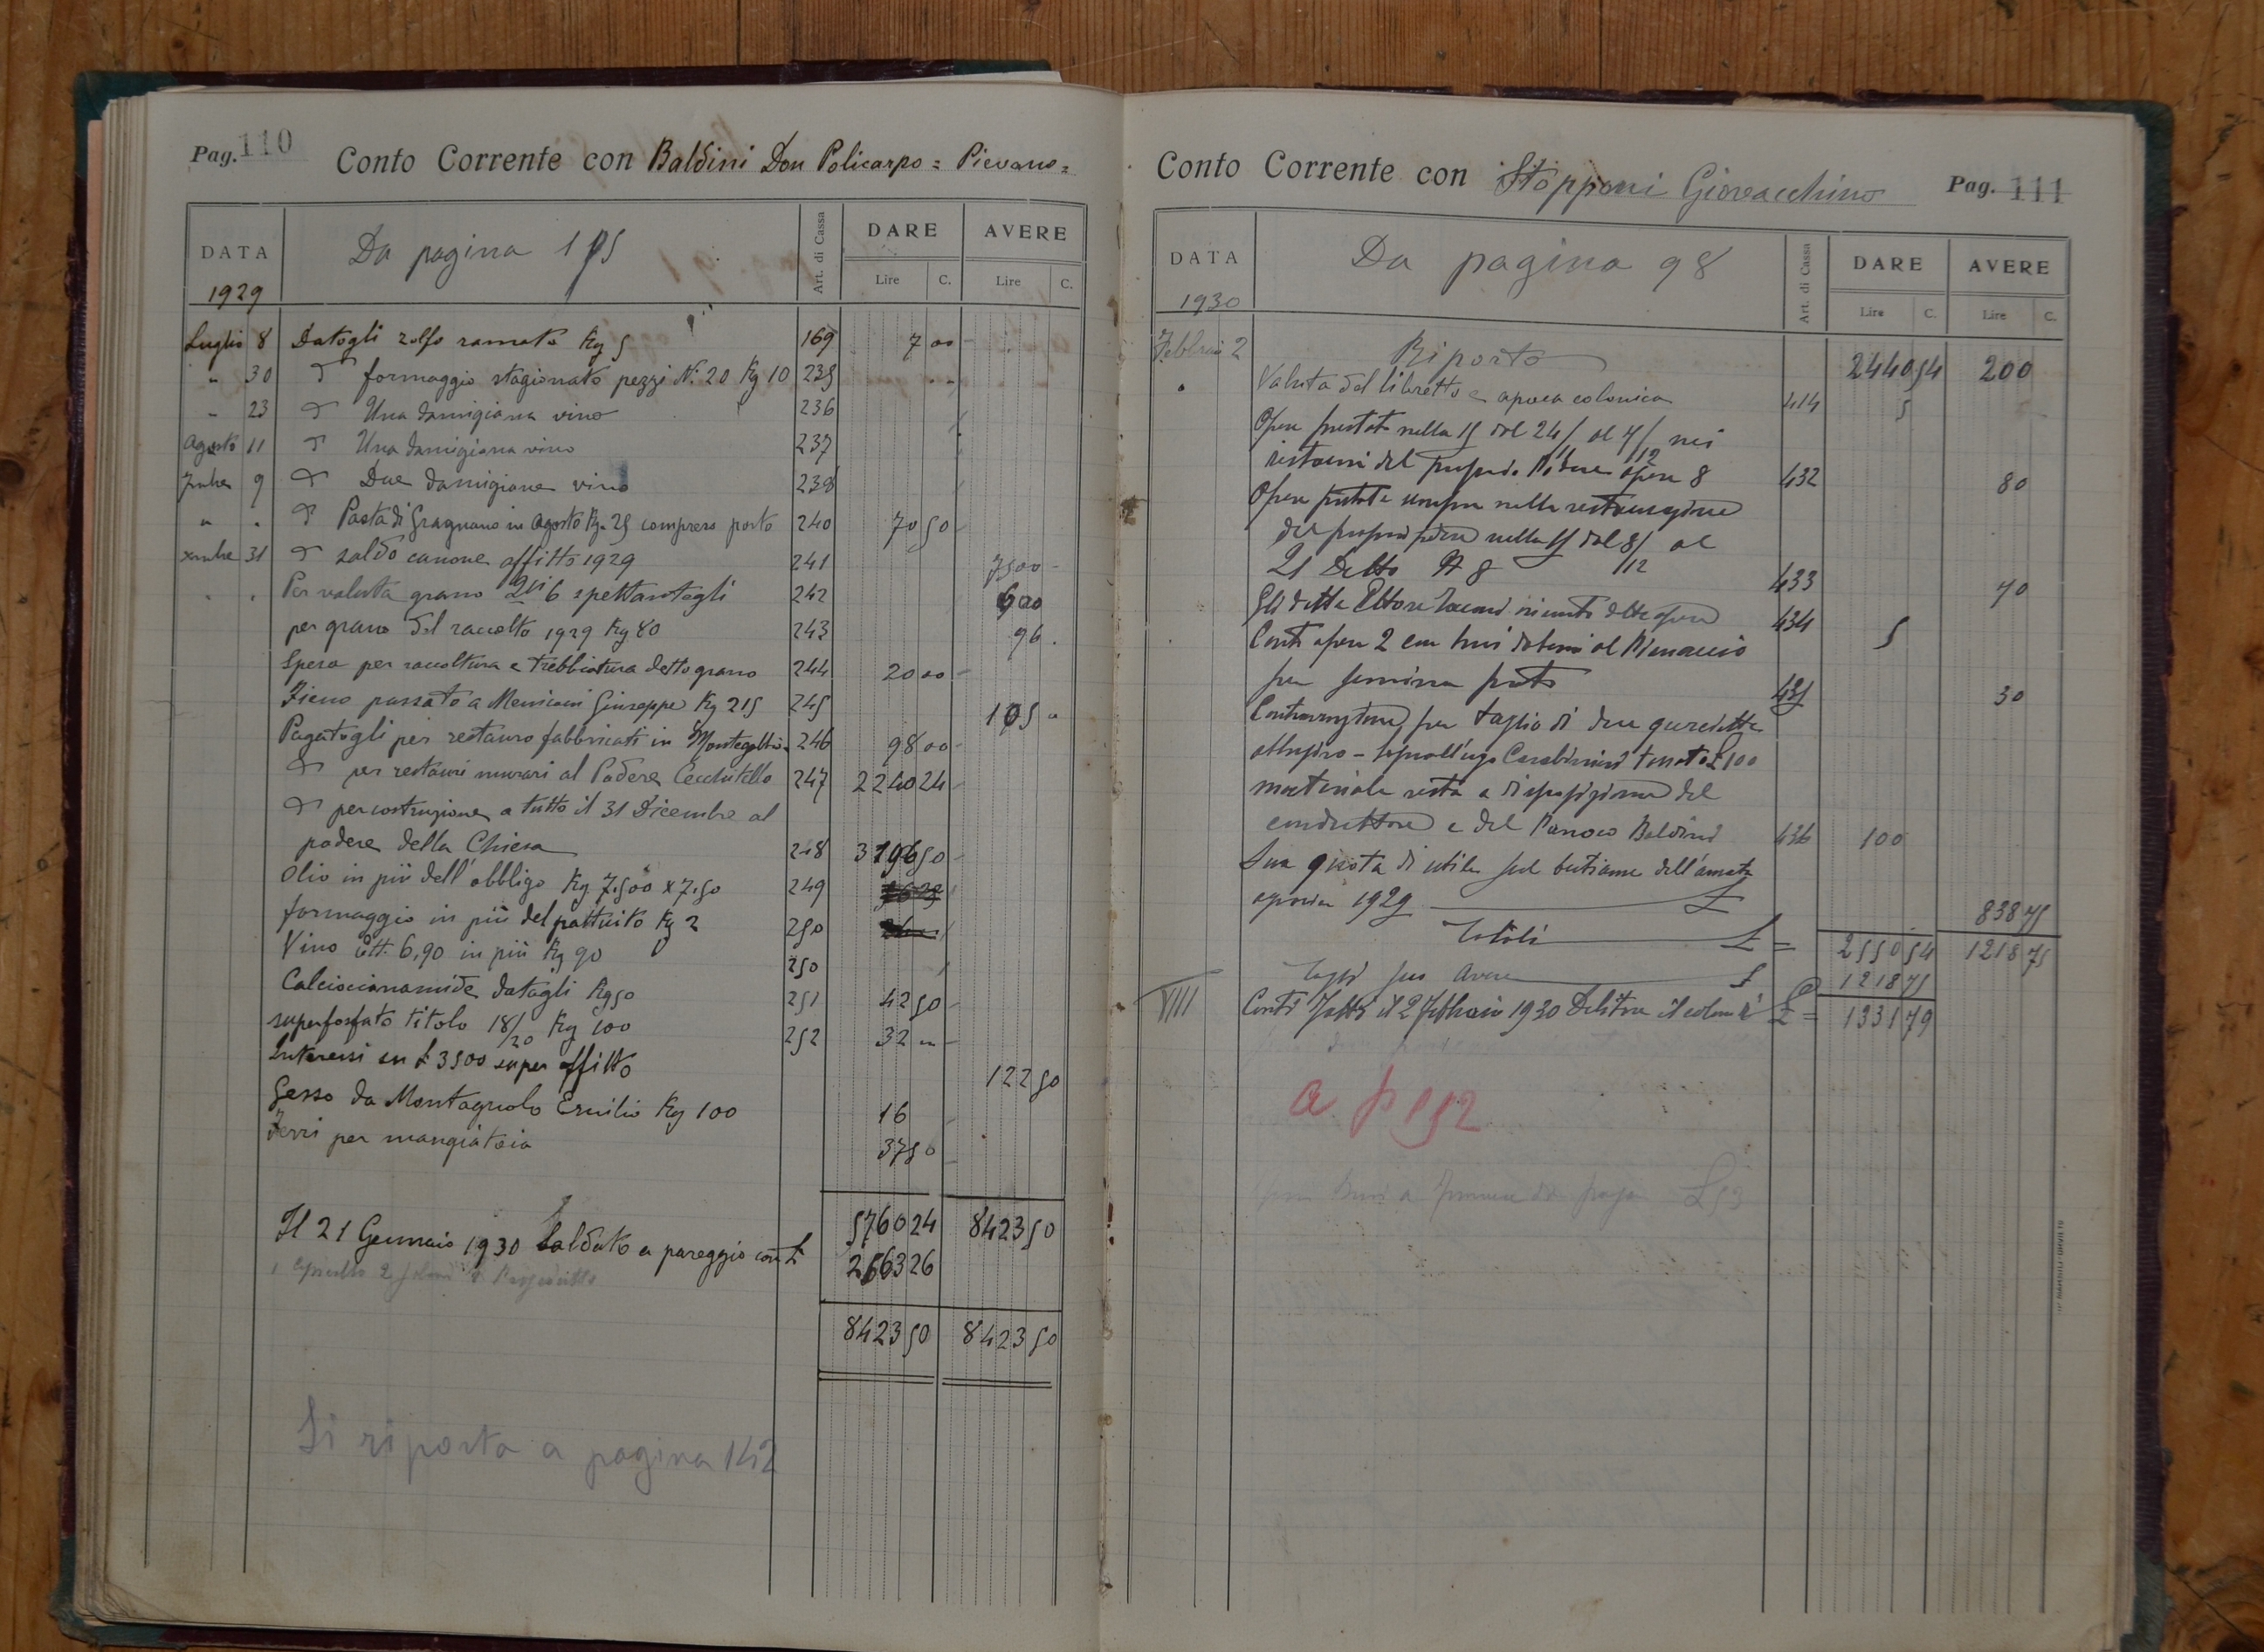 Pag. 110
Conto Corrente con Baldini Don Policarpo = Pievano =
DATA
1929
Da pagina 105
Art. di Cassa
DARE
AVERE
Lire C. Lire C.
Luglio 8 Datogli zolfo ramato Kg 5 169 7 00
" 30 d° formaggio stagionato pezzi N. 20 Kg 10 235
" 23 d° Una damigiana vino 236
Agosto 11 d° Una damigiana vino 237
7mbre 9 d° Due damigiane vino 238
" " d° Pasta di Gragnano in Agosto Kg. 25 compreso porto 240 70 50
xmbre 31 d° saldo canone affitto 1929 241 7500
" " Per valuta grano Qli 6 spettantegli 242 600
per grano del raccolto 1929 Kg 80 243 96
Spesa per raccoltura e trebbiatura detto grano 244 20 00
Fieno passato a Menicani Giuseppe Kg 215 245 105
Pagatogli per restauro fabbricati in 246 98 00
d° per restauri murari al Podere Cecchitello 247 2240 24
d° per costruzione a tutto il 31 Dicembre al
podere della Chiesa 248 3196 50
Olio in più dell'obbligo Kg 7.500 x 7.50 249
formaggio in più del pattuito Kg 2 250
Vino Ett. 6,90 in più Kg 90 250
Calciocianamide datogli Kg 50 251 42 50
superfosfato titolo 18/20 Kg 100 252 32
Interessi su £ 3500 super affitto 122 50
Gesso da Montagnolo Emilio Kg 100 16
Ferri per mangiatoia 37 50
5760 24 8423 50
Il 21 Gennaio 1930 Saldato a pareggio conti £ 2663 26
8423 50 8423 50
Si riporta a pagina 142
Conto Corrente con Stopponi Giovacchino
Pag. 111
DATA
1930
Da pagina 98
Art. di Cassa
DARE
AVERE
Lire C. Lire C.
Febbraio 2 Riporto 2440 54 200
" Valuta del libretto e apoca colonica 414 5
Opere prestate nella 15 dal 24/11 al 7/12 nei
restauri del proprio Podere opere 8 432 80
Opere prestate sempre nella restaurazione
del proprio podere nella 15 dal 8/ al
21 Detto N 8 /12 433 70
Gli dette Ettore dette opere 434 5
Conto opere 2 con buoi al
per semina prato 435 30
Contravvenzione per taglio di due quercette
Carabinieri £ 100
materiale resta a disposizione del
conduttore e del Parroco Baldini 436 100
Sua quota di utile sul bestiame dell'annata
1929 £ 838 75
Totali £ = 2550 54 1218 75
suo Avere £ 1218 75
VIII Conti fatti il 2 Febbraio 1930 Debitore il colono di £ = 1331 79
a p 152